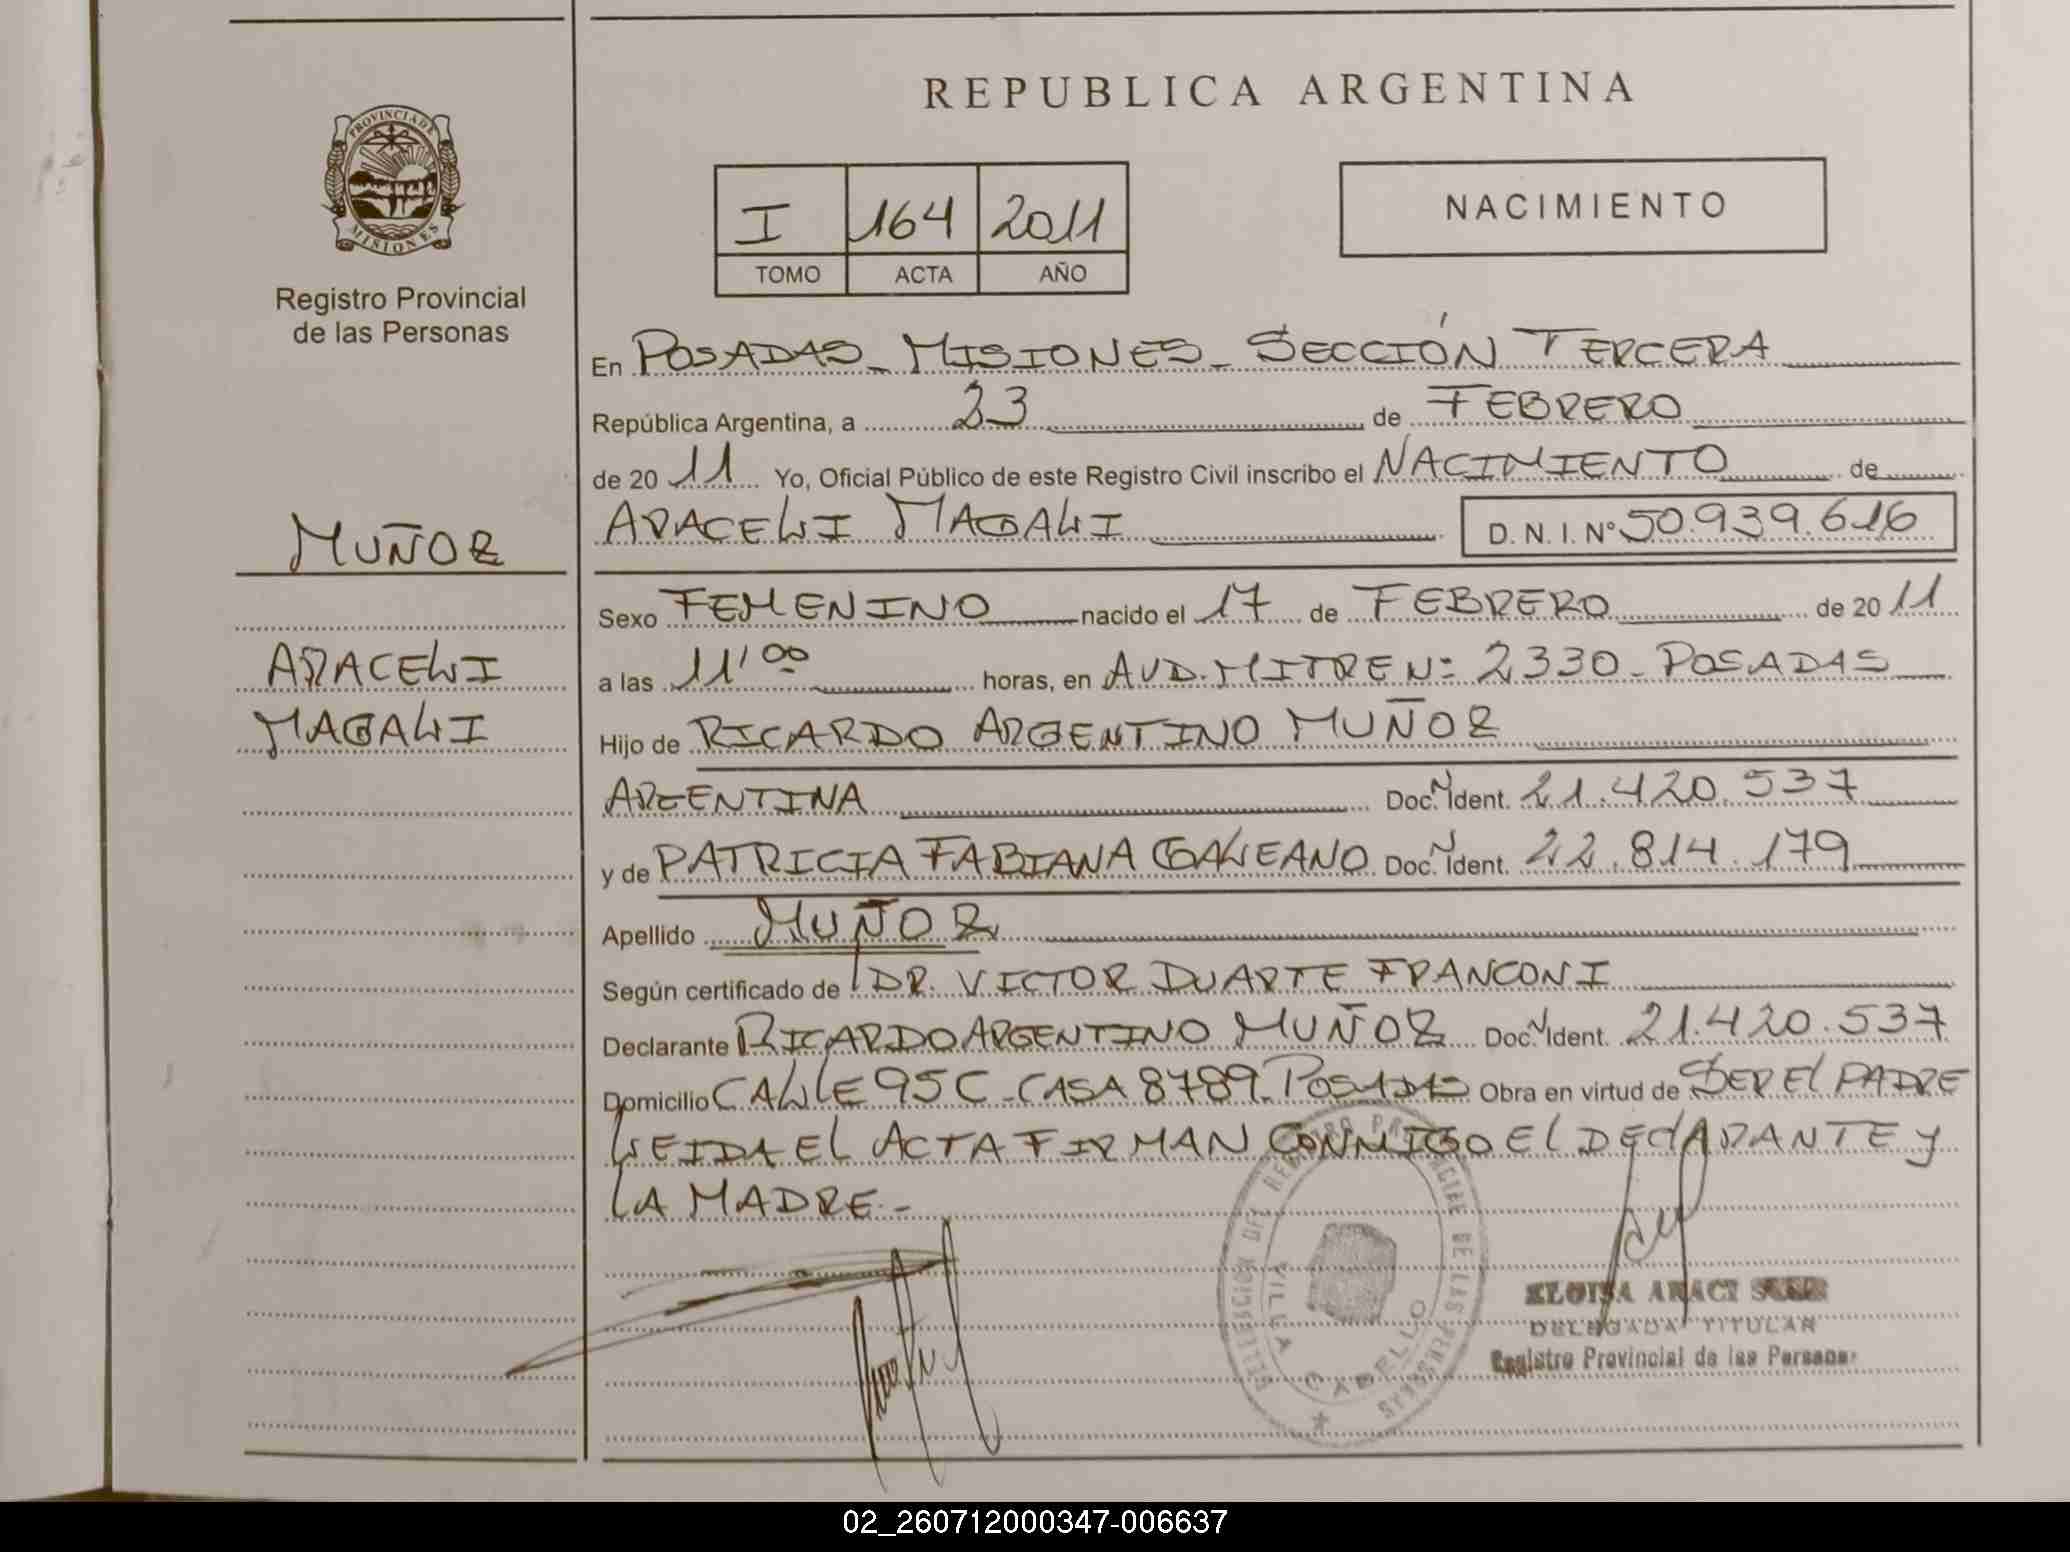 REPUBLICA ARGENTINA
PROVINCIA DE
MISIONES
Registro Provincial
de las Personas
I 164 2011
TOMO ACTA AÑO
NACIMIENTO
En POSADAS - MISIONES - SECCIÓN TERCERA
República Argentina, a 23 de FEBRERO
de 20 11 Yo, Oficial Público de este Registro Civil inscribo el NACIMIENTO de
ARACELI MAGALI D. N. I. Nº 50.939.616
MUÑOZ
ARACELI
MAGALI
Sexo FEMENINO nacido el 17 de FEBRERO de 20 11
a las 11'00 horas, en AVD. MITRE N= 2330 - POSADAS
Hijo de RICARDO ARGENTINO MUÑOZ
ARGENTINA Doc. N Ident. 21.420.537
y de PATRICIA FABIANA GALEANO Doc. N Ident. 22.814.179
Apellido MUÑOZ
Según certificado de DR. VICTOR DUARTE FRANCONI
Declarante RICARDO ARGENTINO MUÑOZ Doc. N Ident. 21.420.537
Domicilio CALLE 95 C - CASA 8789 - POSADAS Obra en virtud de SER EL PADRE
LEIDA EL ACTA FIRMAN CONMIGO EL DECLARANTE Y
LA MADRE.-
DELEGACION DEL REGISTRO PROVINCIAL DE LAS PERSONAS
VILLA CABELLO
ELOISA ARACI
DELEGADA TITULAR
Registro Provincial de las Personas
02_260712000347-006637